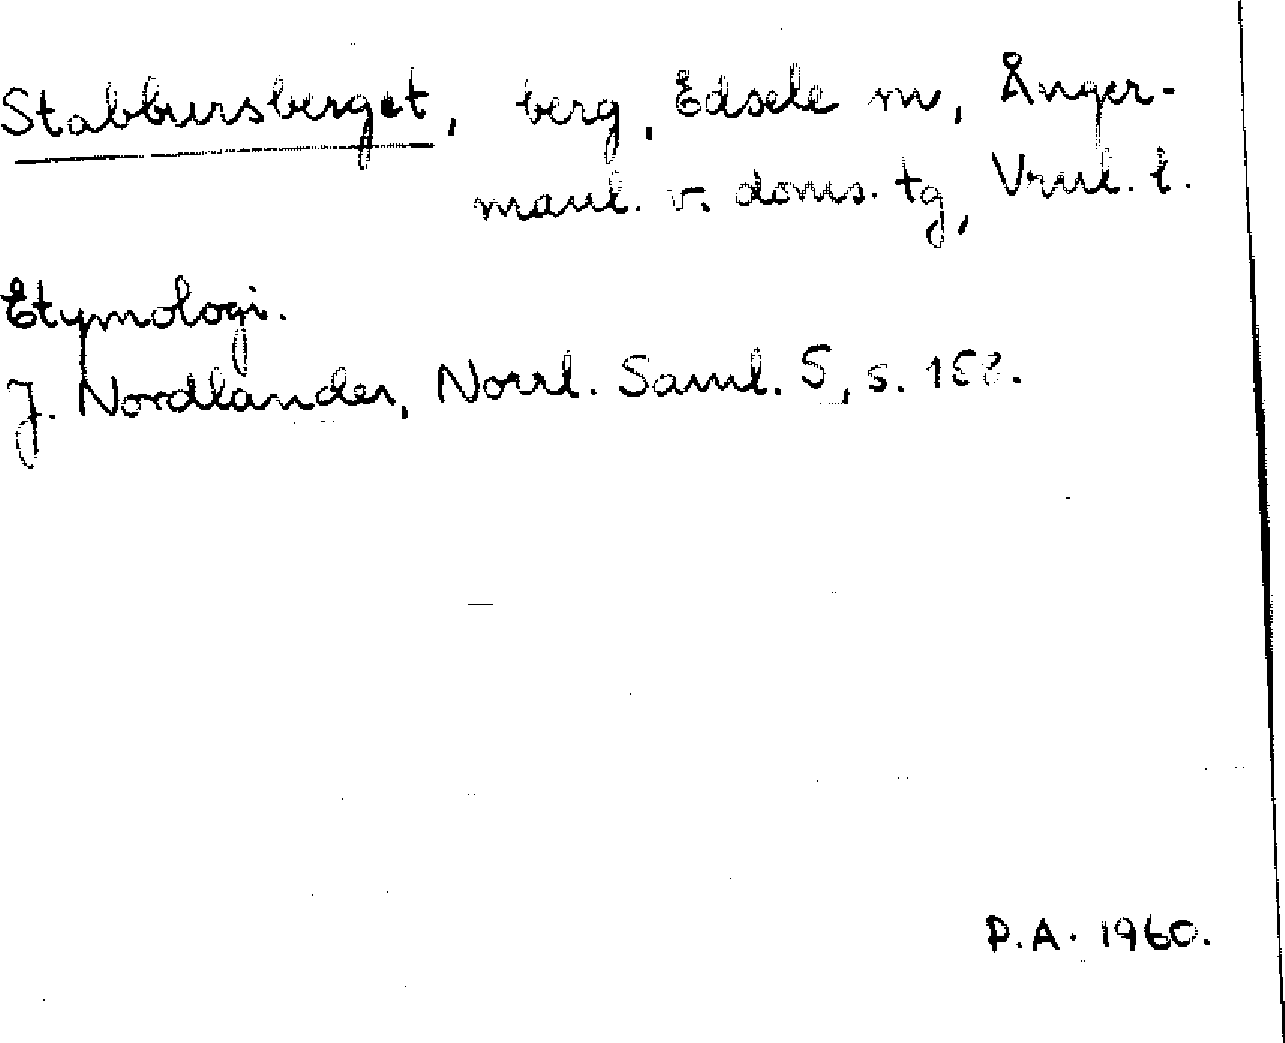 Stabbursberget, berg, Edsele sn, Ånger-
manl. v. doms. tg, Vrnl. l.
Etymologi.
J. Nordlander, Norrl. Saml. 5, s.
P.A. 1960.